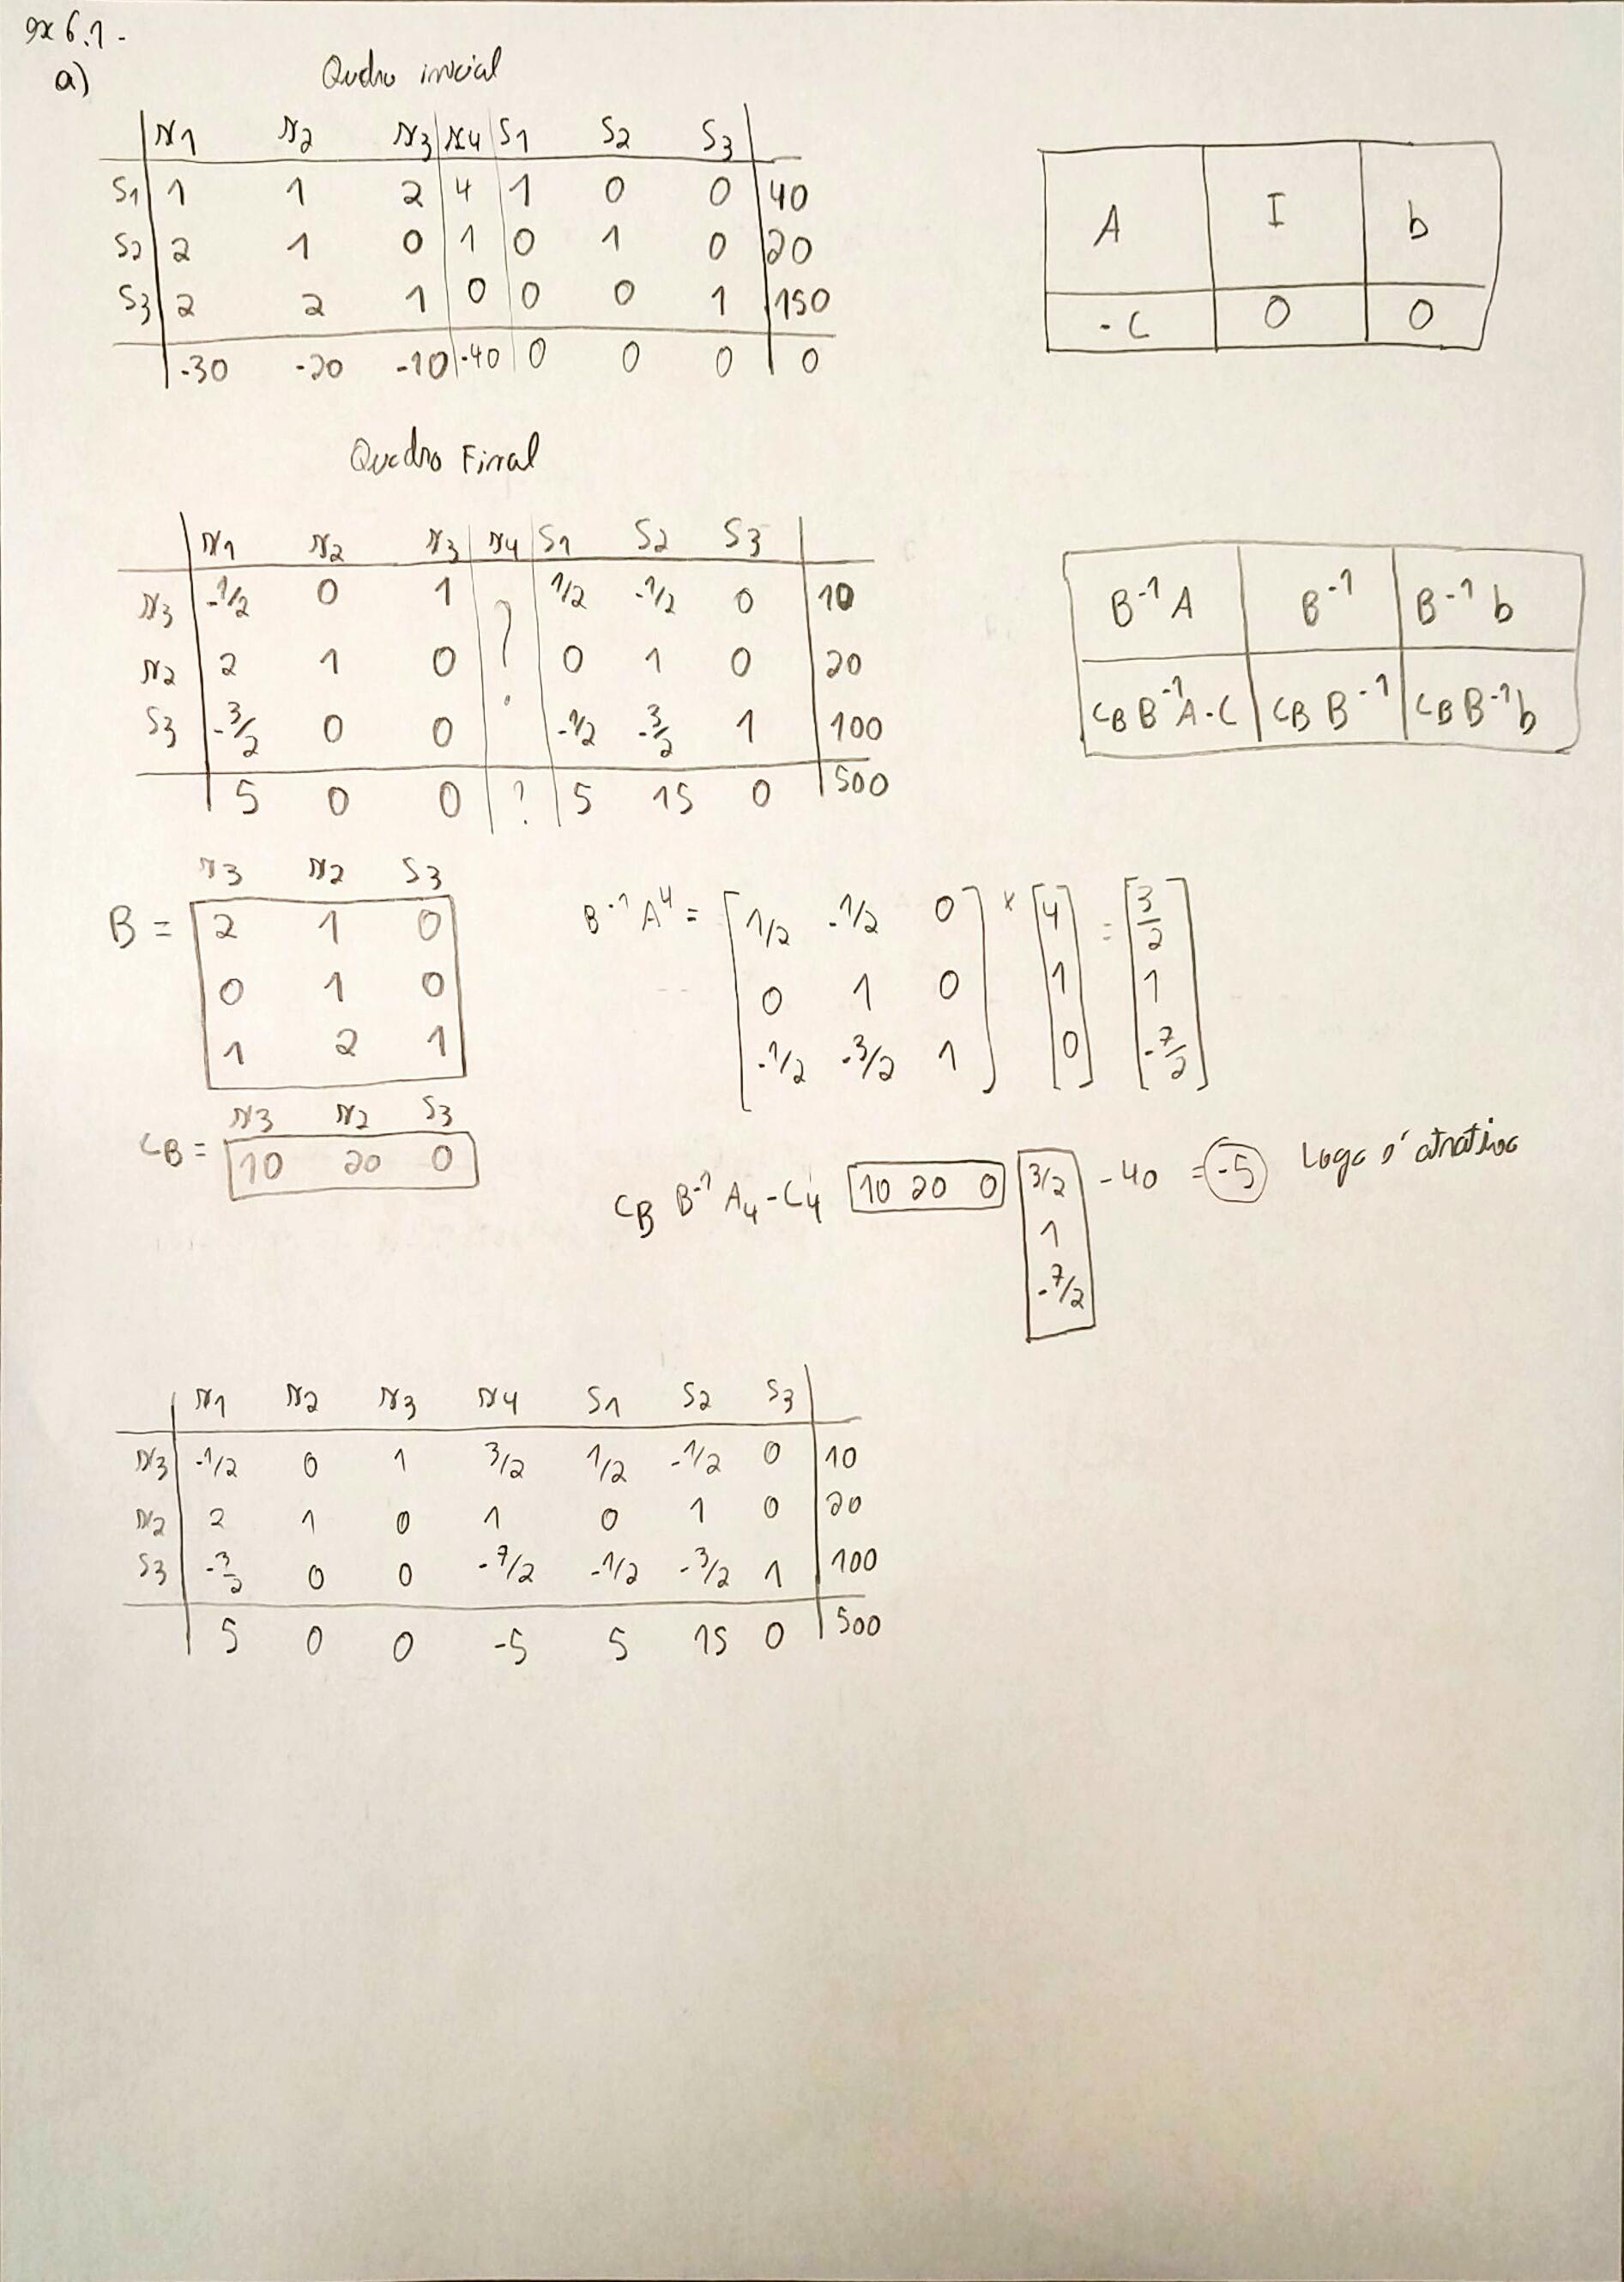 ex 6.1.
a)
Quadro inicial
x1 x2 x3 x4 S1 S2 S3
S1 1 1 2 4 1 0 0 40
S2 2 1 0 1 0 1 0 20
S3 2 2 1 0 0 0 1 150
-30 -20 -10 -40 0 0 0 0
A I b
-C 0 0
Quadro Final
x1 x2 x3 x4 S1 S2 S3
x3 -1/2 0 1 ? 1/2 -1/2 0 10
x2 2 1 0 0 1 0 20
S3 -3/2 0 0 -1/2 -3/2 1 100
5 0 0 ? 5 15 0 500
B-1 A B-1 B-1 b
CB B-1 A - C CB B-1 CB B-1 b
x3 x2 S3
B = 2 1 0
0 1 0
1 2 1
B-1 A4 = [1/2 -1/2 0] x [4] = [3/2]
0 1 0 1 1
-1/2 -3/2 1 0 -7/2
x3 x2 S3
CB = 10 20 0
CB B-1 A4 - C4 10 20 0 3/2 - 40 = -5 Logo é atrativa
1
-7/2
x1 x2 x3 x4 S1 S2 S3
x3 -1/2 0 1 3/2 1/2 -1/2 0 10
x2 2 1 0 1 0 1 0 20
S3 -3/2 0 0 -7/2 -1/2 -3/2 1 100
5 0 0 -5 5 15 0 500